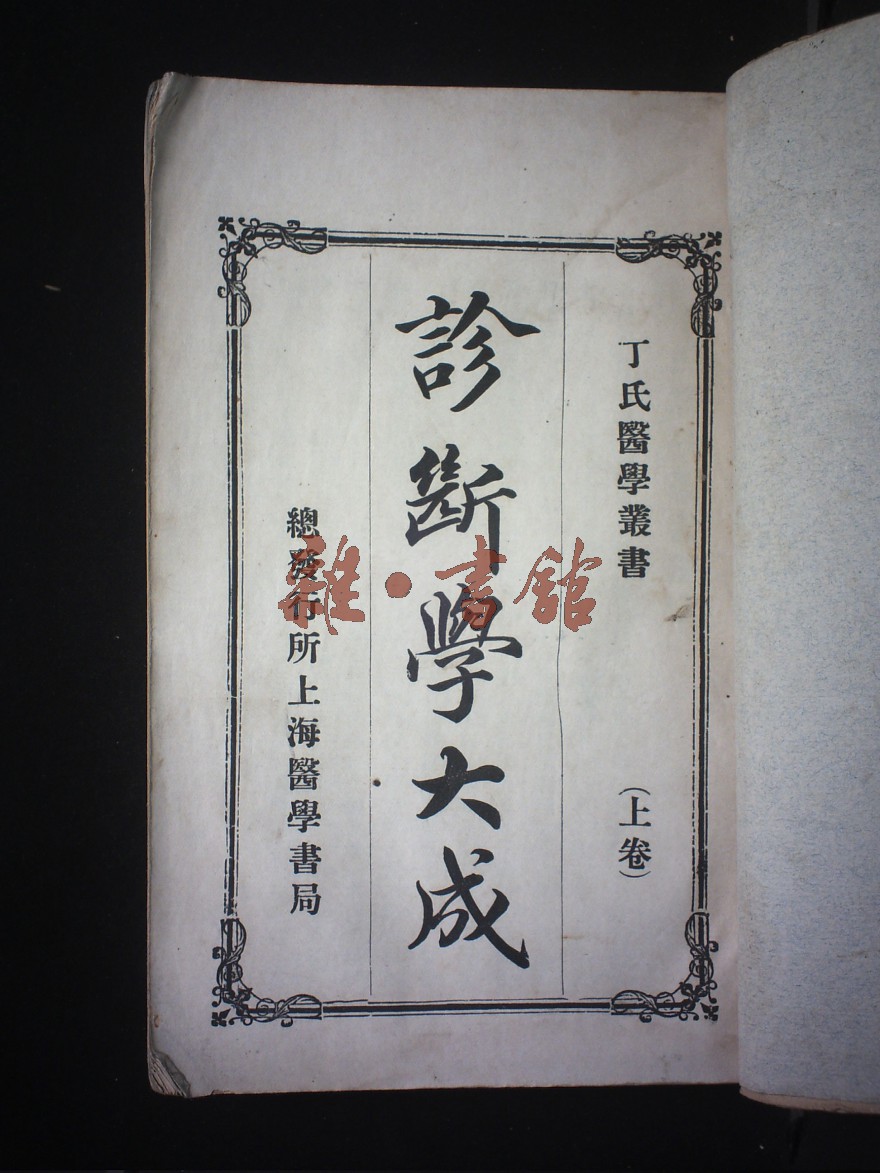 丁氏醫學叢書
(上卷)
診斷學大成
總發行所上海醫學書局
雜·書館